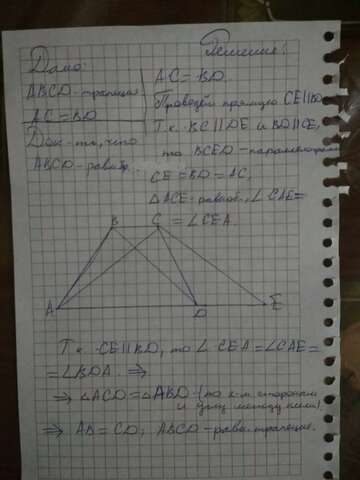 Решение:
Дано:
ABCD - трапеция
AC = BD
Док-ть, что
ABCD - равноб...
AC = BD.
Проведём прямую CE || BD
Т.к. BC || DE и BD || CE,
то BCED - параллелограм
CE = BD = AC,
△ACE - равноб., ∠CAE =
= ∠CEA.
B C
A D E
Т.к. CE || BD, то ∠CEA = ∠CAE =
= ∠BDA. ⇒
⇒ △ACD = △ABD (по 2-м сторонам
и углу между ними)
⇒ AB = CD, ABCD - равн. трапеция.